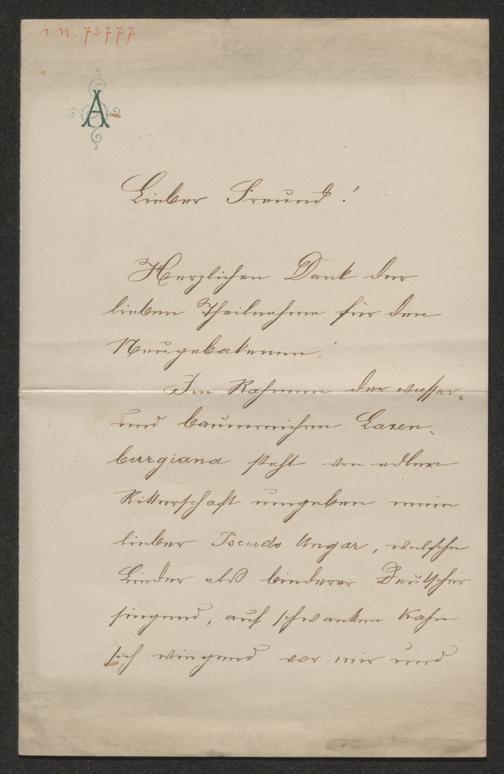 I. N. 72777
A
Lieber Freund!
Herzlichen Dank der
lieben Theilnahme für den
Neugebakenen.
Im Rahmen der wasser-
und baumreichen Laxen-
burgiana steht von edler
Ritterschaft umgeben mein
lieber Pseudo Ungar, welsche
Lieder als biederer Deutscher
singend, auf schwankem Kahn
sich wiegend vor mir und